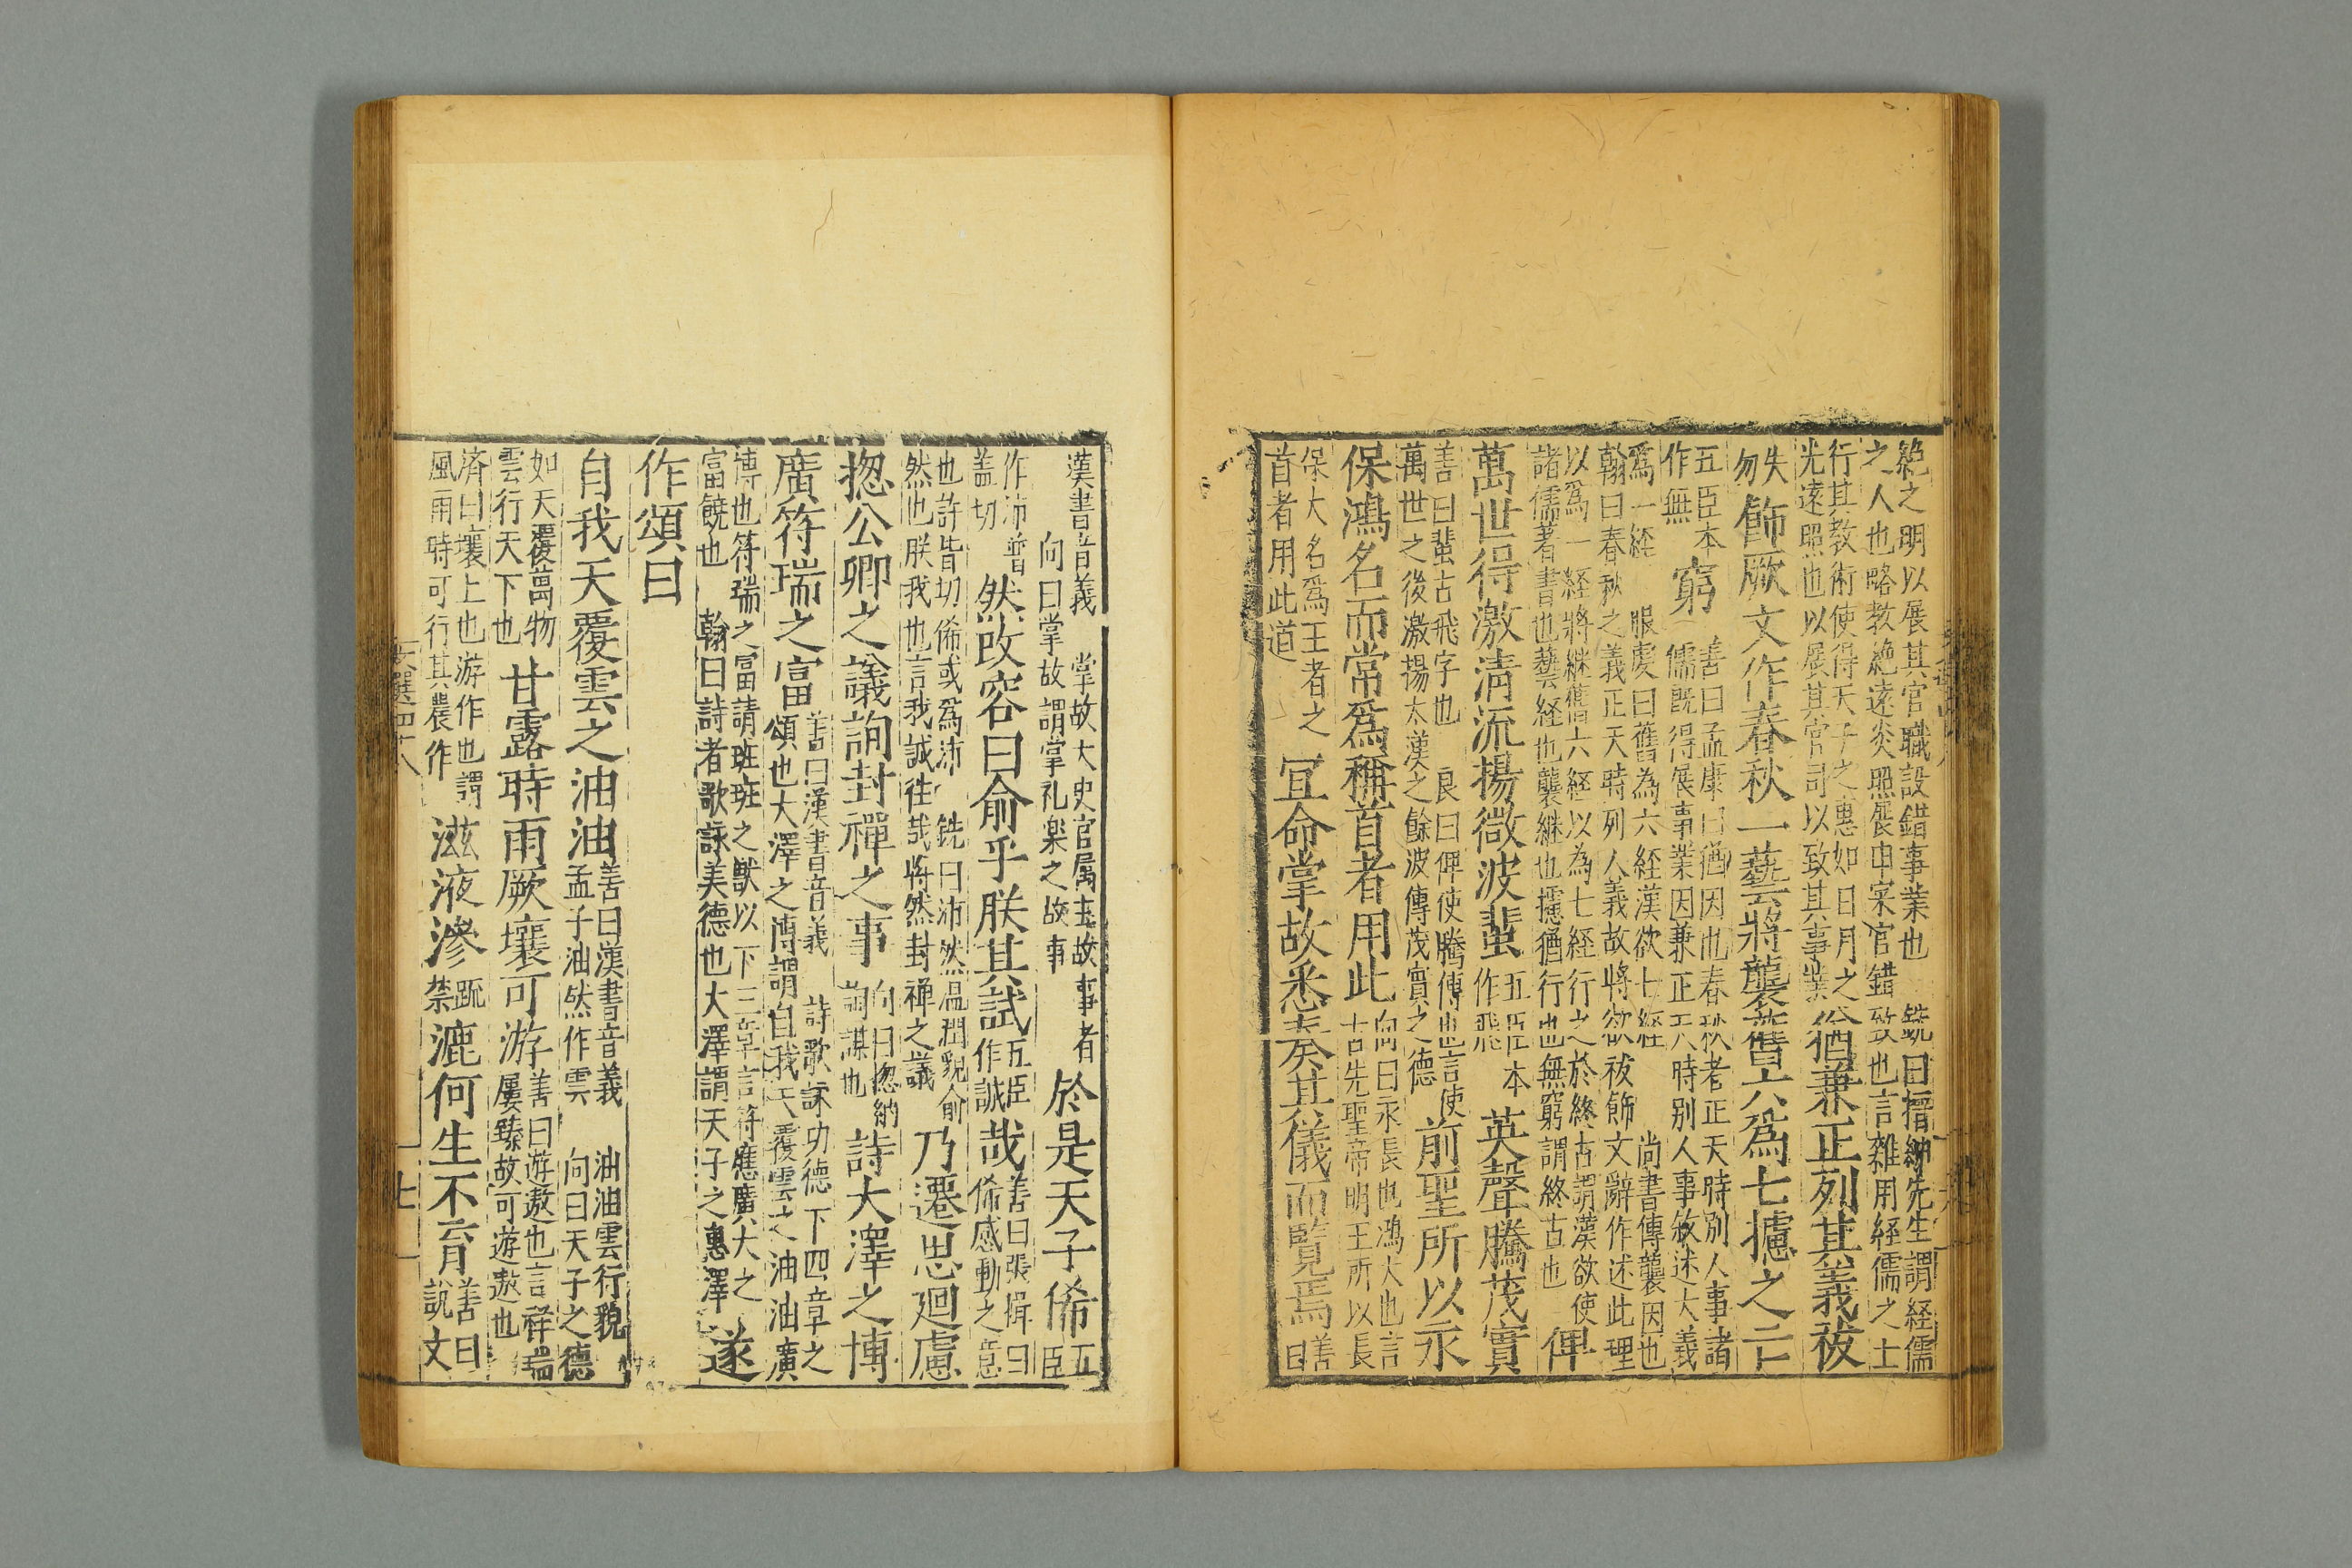 絶之明以展其官職設錯事業也 銑曰搢紳先生謂経儒
之人也略敎絶遠炎照展申寀官錯致也言雜用経儒之士
行其教術使得天子之惠如日月之
光遠照也以展其官司以致其事業
猶兼正列其義祓
失
勿
飾厥文作春秋一藝將襲舊六爲七攄之亡
五臣本
作無
窮
善曰孟康曰猶因也春秋者正天時別人事諸
儒既得展事業因兼正天時别人事敘述大義
爲一経 服虔曰舊為六經漢欲七経 尚書傳襲因也
翰曰春秋之義正天時列人義故將欲祓飾文辭作述此理
以爲一経將継舊六経以為七経行之於終古謂漢欲使
諸儒著書也藝経也襲継也攄猶行也無窮謂終古也
俾
萬世得激清流揚微波蜚
五臣本
作飛
英聲騰茂實
善曰蜚古飛字也 良曰俾使騰傳也言使
萬世之後激揚太漢之餘波傳茂實之德
前聖所以永
保鴻名而常爲稱首者用此
向曰永長也鴻大也言
古先聖帝明王所以長
保大名爲王者之
首者用此道
宜命掌故悉奏其儀而覽焉
善
曰
漢書音義 掌故大史官属主故事者
向曰掌故謂掌礼楽之故事
於是天子俙
五
臣
作沛普
盖切
然改容曰俞乎朕其試
五臣
作誠
哉
善曰張揖曰
俙感動之意
也許皆切俙或爲沛 銑曰沛然温潤貌俞
然也朕我也言我誠往哉将然封禅之議
乃遷思廻慮
揔公卿之議詢封禪之事
向曰揔納
詢謀也
詩大澤之博
廣符瑞之富
善曰漢書音義 詩歌詠功德下四章之
頌也大澤之博謂自我天覆雲之油油廣
博也符瑞之富請班班之獣以下三章言符應廣大之
富饒也 翰曰詩者歌詠美德也大澤謂天子之惠澤
遂
作頌曰
自我天覆雲之油油
善曰漢書音義 油油雲行貌
孟子油然作雲 向曰天子之德
如天覆萬物
雲行天下也
甘露時雨厥壤可游
善曰遊遨也言祥瑞
屢臻故可遊遨也
済曰壤土也游作也謂
風雨時可行其農作
滋液滲
䟽
禁
漉何生不育
善曰
説文
文選四十八
十七